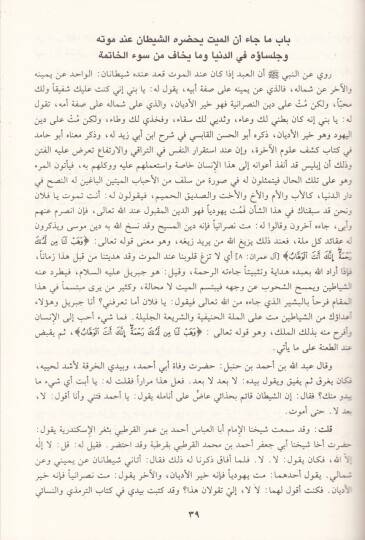 باب ما جاء أن الميت يحضره الشيطان عند موته
وجلساؤه في الدنيا وما يخاف من سوء الخاتمة
روي عن النبي ﷺ أن العبد إذا كان عند الموت قعد عنده شيطانان: الواحد عن يمينه
والآخر عن شماله، فالذي عن يمينه على صفة أبيه، يقول له: يا بني إني كنت عليك شفيقاً ولك
محباً، ولكن مُتْ على دين النصرانية فهو خير الأديان، والذي على شماله على صفة أمه، تقول
له: يا بني إنه كان بطني لك وعاء، وثديي لك سقاء، وفخذي لك وطاء، ولكن مُتْ على دين
اليهود وهو خير الأديان، ذكره أبو الحسن القابسي في شرح ابن أبي زيد له، وذكر معناه أبو حامد
في كتاب كشف علوم الآخرة، وإن عند استقرار النفس في التراقي والارتفاع تعرض عليه الفتن
وذلك أن إبليس قد أنفذ أعوانه إلى هذا الإنسان خاصة واستعملهم عليه ووكلهم به، فيأتون المرء
وهو على تلك الحال فيتمثلون له في صورة من سلف من الأحباب الميتين الباغين له النصح في
دار الدنيا، كالأب والأم والأخ والأخت والصديق الحميم، فيقولون له: أنت تموت يا فلان
ونحن قد سبقناك في هذا الشأن فمُت يهودياً فهو الدين المقبول عند الله تعالى، فإن انصرم عنهم
وأبى، جاءه آخرون وقالوا له: مت نصرانياً فإنه دين المسيح وقد نسخ الله به دين موسى ويذكرون
له عقائد كل ملة، فعند ذلك يزيغ الله من يريد زيغه، وهو معنى قوله تعالى: ﴿وَهَبْ لَنَا مِن لَّدُنكَ
رَحْمَةً إِنَّكَ أَنتَ الْوَهَّابُ﴾ [آل عمران: ٨] أي لا تزغ قلوبنا عند الموت وقد هديتنا من قبل هذا زماناً،
فإذا أراد الله بعبده هداية وتثبيتاً جاءته الرحمة، وقيل: هو جبريل عليه السلام، فيطرد عنه
الشياطين ويمسح الشحوب عن وجهه فيبتسم الميت لا محالة، وكثير من يرى مبتسماً في هذا
المقام فرحاً بالبشير الذي جاءه من الله تعالى فيقول: يا فلان أما تعرفني؟ أنا جبريل وهؤلاء
أعداؤك من الشياطين مت على الملة الحنيفية والشريعة الجليلة. فما شيء أحب إلى الإنسان
وأفرح منه بذلك الملك، وهو قوله تعالى: ﴿وَهَبْ لَنَا مِن لَّدُنكَ رَحْمَةً إِنَّكَ أَنتَ الْوَهَّابُ﴾، ثم يقبض عند
الطعنة على ما يأتي.
وقال عبد الله بن أحمد بن حنبل: حضرت وفاة أبي أحمد، وبيدي الخرقة لأشد لحييه،
فكان يغرق ثم يفيق ويقول بيده: لا بعد لا بعد. فعل هذا مراراً فقلت له: يا أبت أي شيء ما
يبدو منك؟ فقال: إن الشيطان قائم بحذائي عاض على أنامله يقول: يا أحمد فتني وأنا أقول: لا،
بعد لا. حتى أموت.
قلت: وقد سمعت شيخنا الإمام أبا العباس أحمد بن عمر القرطبي بثغر الإسكندرية يقول:
حضرت أخا شيخنا أبي جعفر أحمد بن محمد القرطبي بقرطبة وقد احتضر. فقيل له: قل: لا إله
إلا الله، فكان يقول: لا. لا. فلما أفاق ذكرنا له ذلك فقال: أتاني شيطانان عن يميني وعن
شمالي. يقول أحدهما: مت يهودياً فإنه خير الأديان، والآخر يقول: مت نصرانياً فإنه خير
الأديان. فكنت أقول لهما: لا، لا، إليّ تقولان هذا؟ وقد كتبت بيدي في كتاب الترمذي والنسائي
٣٩